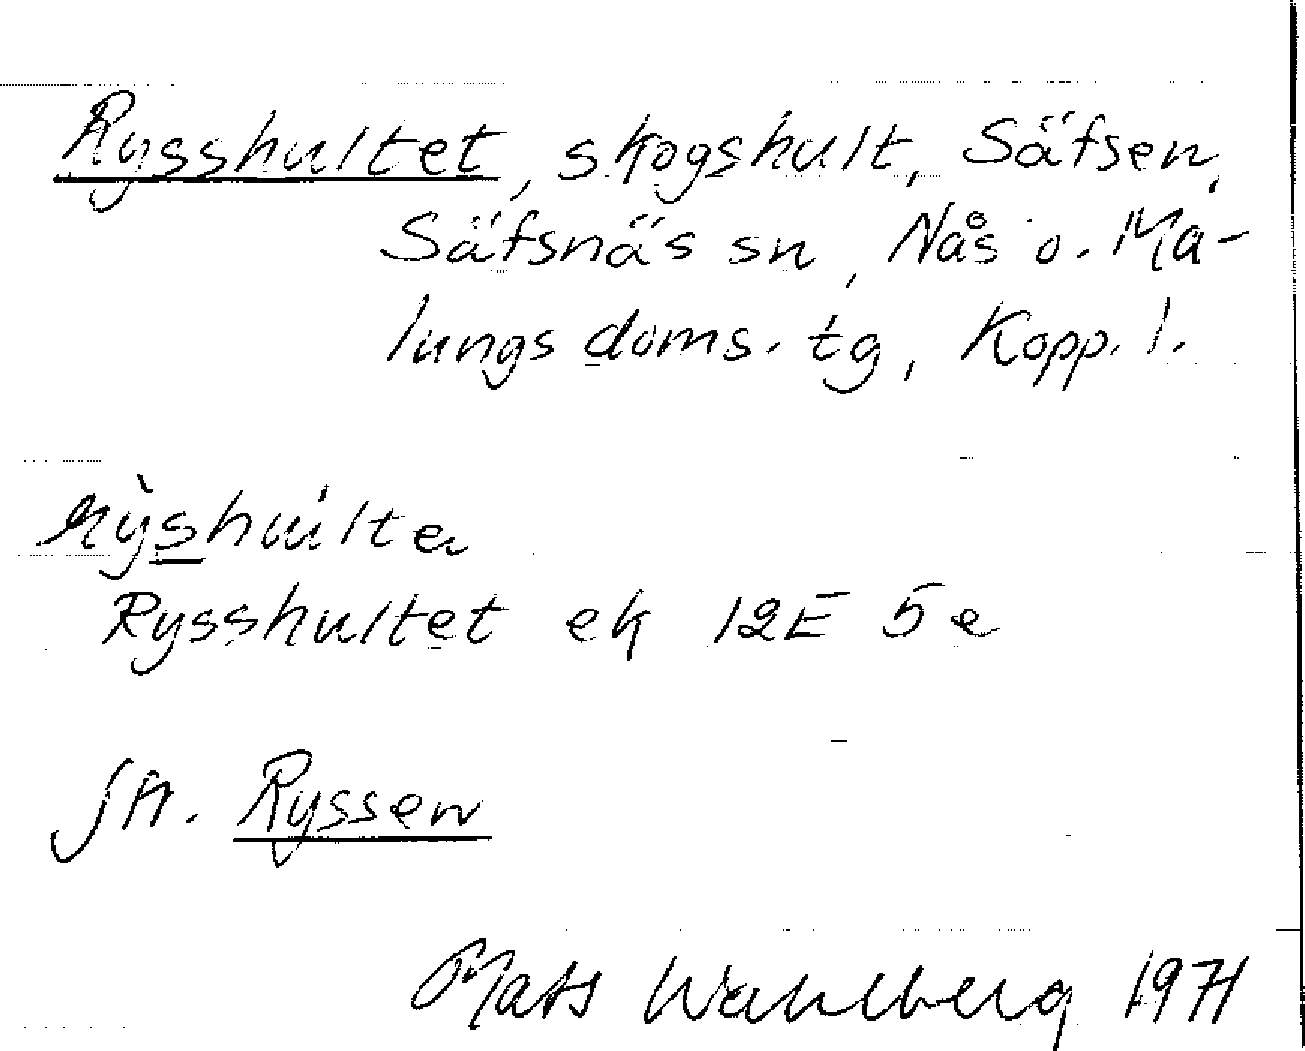 Rysshultet, skogshult, Säfsen,
Säfsnäs sn, Nås o. Ma-
lungs doms. tg, Kopp. l.
rỳshúlte
Rysshultet ek 12E 5e
Jfr. Ryssen
Mats Wahlberg 1971